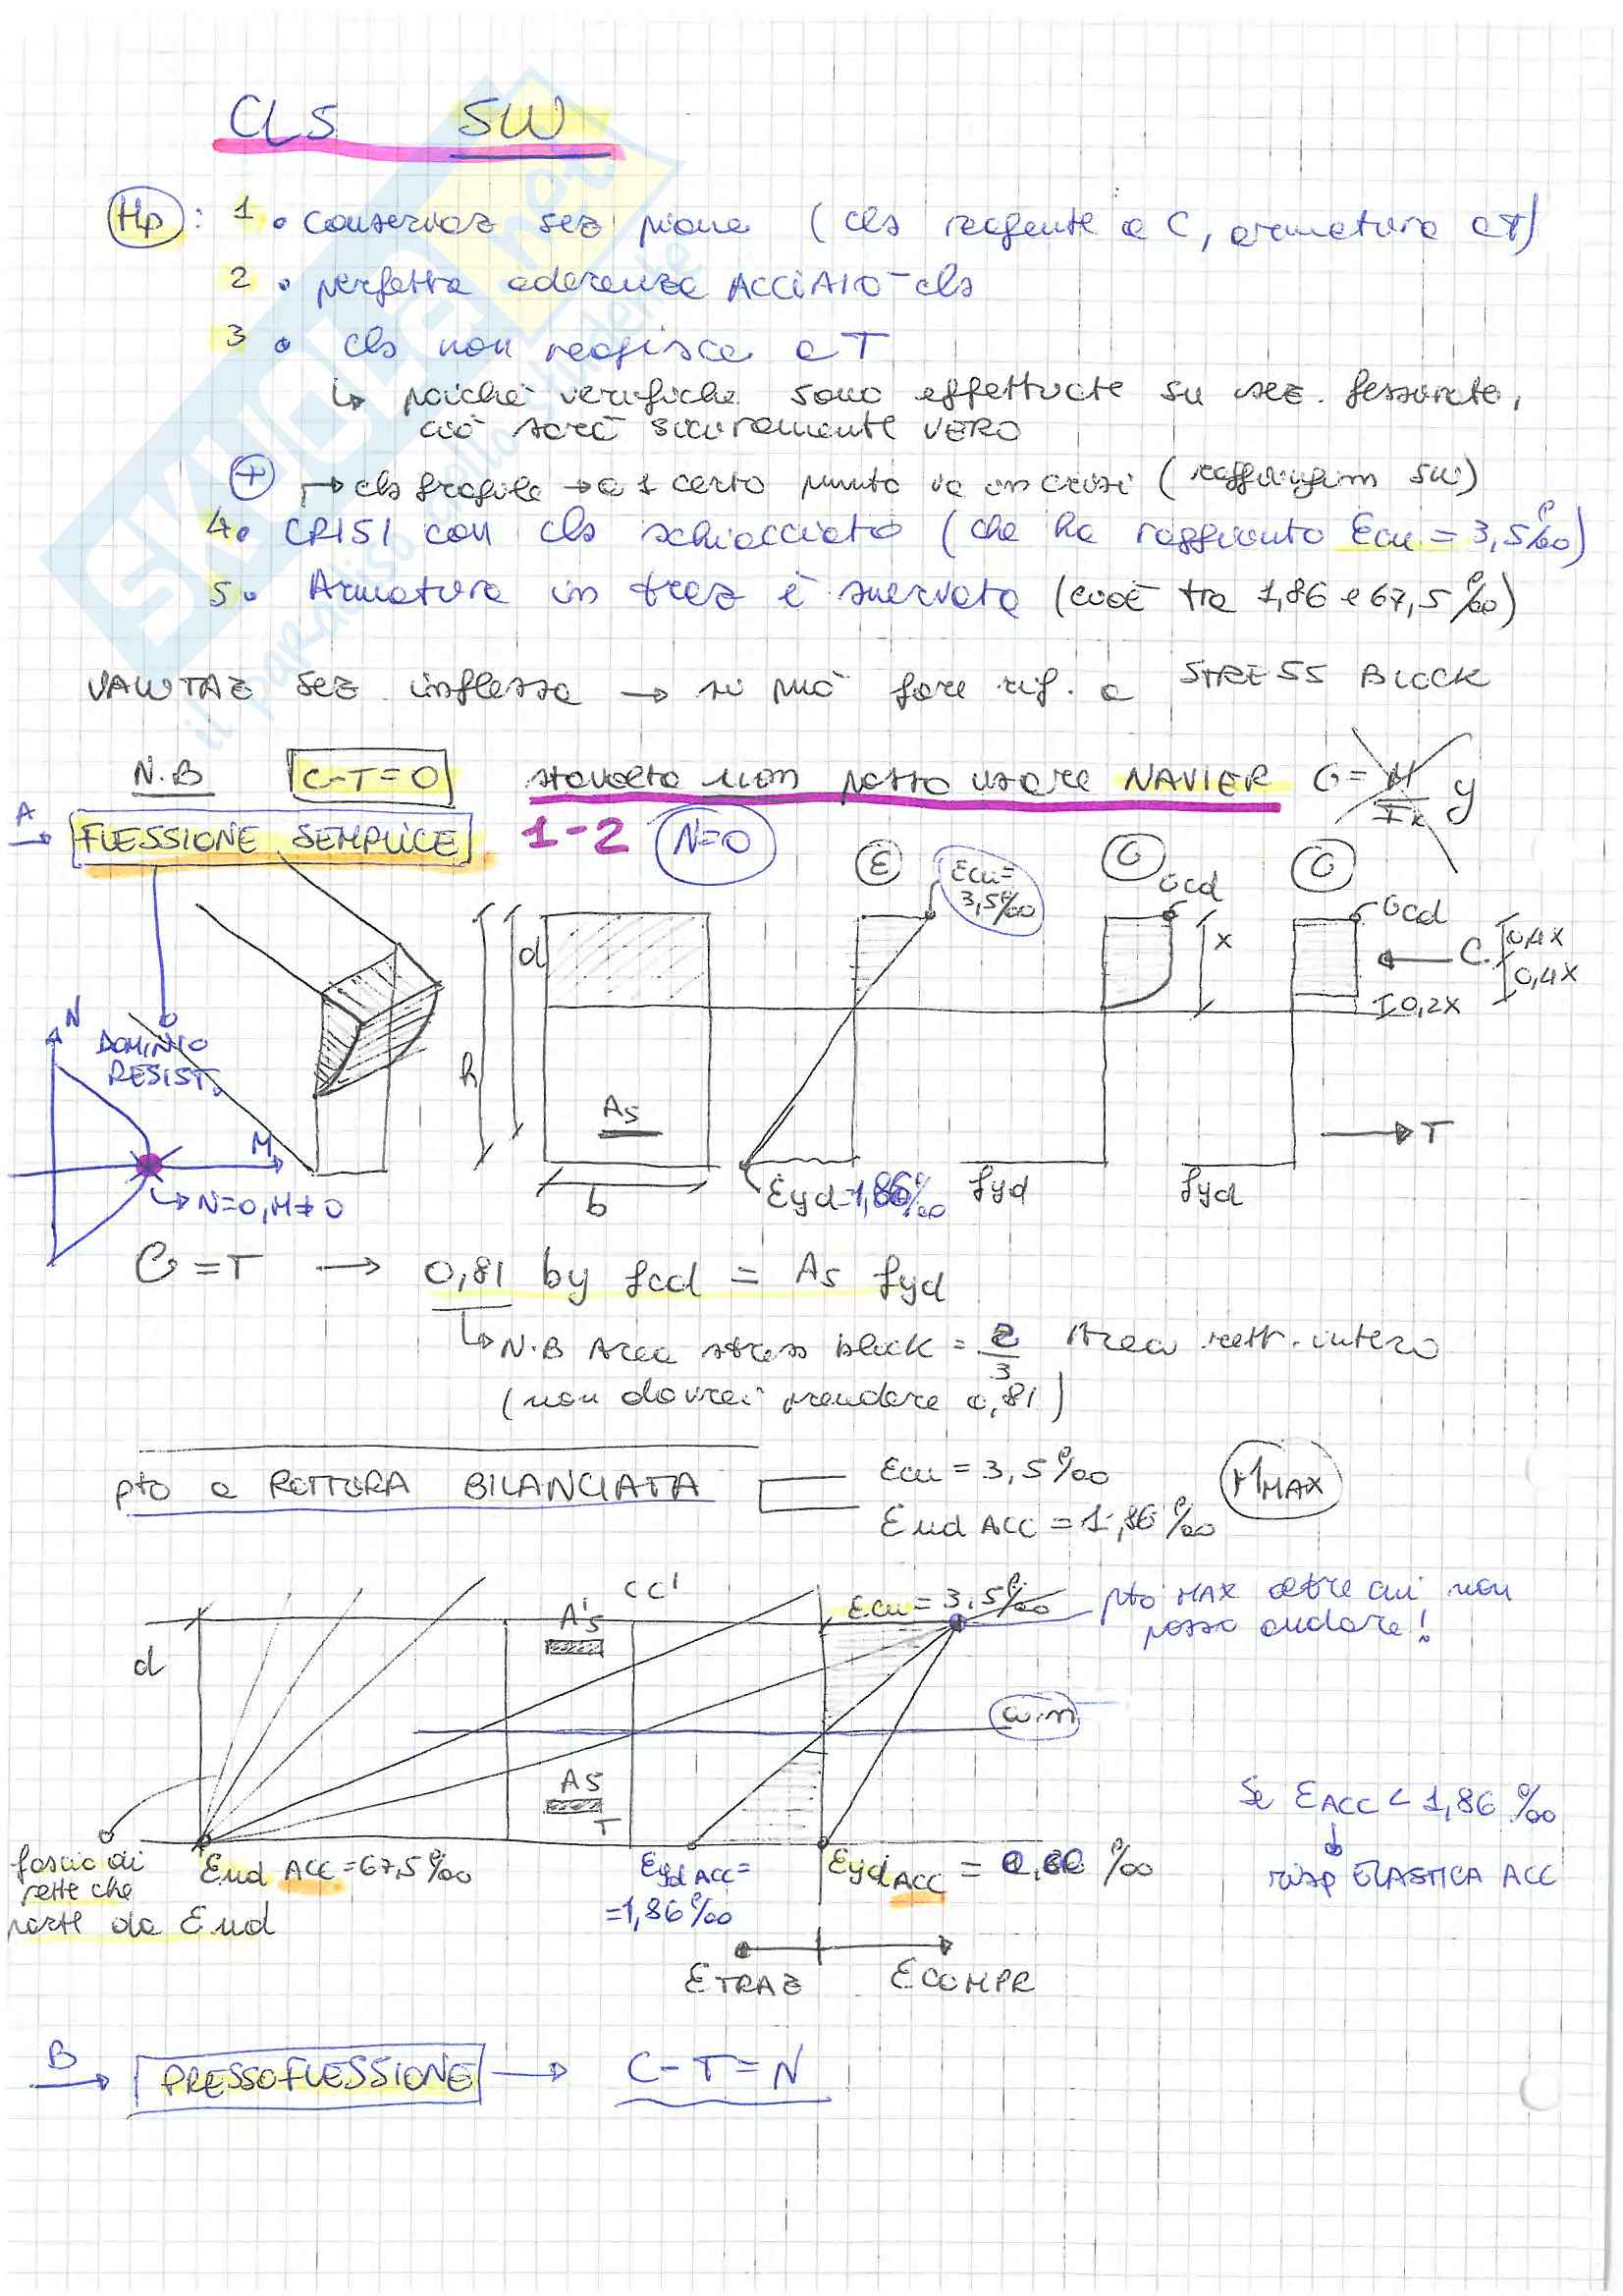 CLS SLU
Hp: 1 • conservaz sez piane (cls reagente a C, armatura a T)
2 • perfetta aderenza ACCIAIO-cls
3 • cls non reagisce a T
↳ poiché verifiche sono effettuate su sez. fessurate,
ciò sarà sicuramente VERO
⊕ → cls fragile → a 1 certo punto va in crisi (raggiungim SLU)
4• CRISI con cls schiacciato (che ha raggiunto Ɛcu = 3,5‰)
5• Armatura in traz è snervata (cioè tra 1,86 e 67,5‰)
VALUTAZ sez inflessa → si può fare rif. a STRESS BLOCK
N.B C-T=0 stavolta non posso usare NAVIER σ = M/Ix y
A → FLESSIONE SEMPLICE 1-2 N=0
Ɛ Ɛcu= 3,5‰ σ σcd σ σcd
d x C 0,4x
0,4x
0,2x
N DOMINIO
RESIST.
h As T
M
→ N=0, M≠0
b Ɛyd=1,86‰ fyd fyd
C = T → 0,81 by fcd = As fyd
↳ N.B Area stress block = 2/3 Area rett. intero
(non dovrei prendere 0,81)
pto a ROTTURA BILANCIATA Ɛcu = 3,5‰ MMAX
Ɛud ACC = 1,86‰
d A's CC' Ɛcu = 3,5‰ pto MAX oltre cui non
posso andare!
a.n
As
T
Se ƐACC < 1,86‰
↓
risp ELASTICA ACC
fascio di
rette che
parte da Ɛud
Ɛud ACC = 67,5‰
Ɛyd ACC=
=1,86‰
Ɛyd ACC = ‰
ƐTRAZ ƐCOMPR
B → PRESSOFLESSIONE → C-T=N